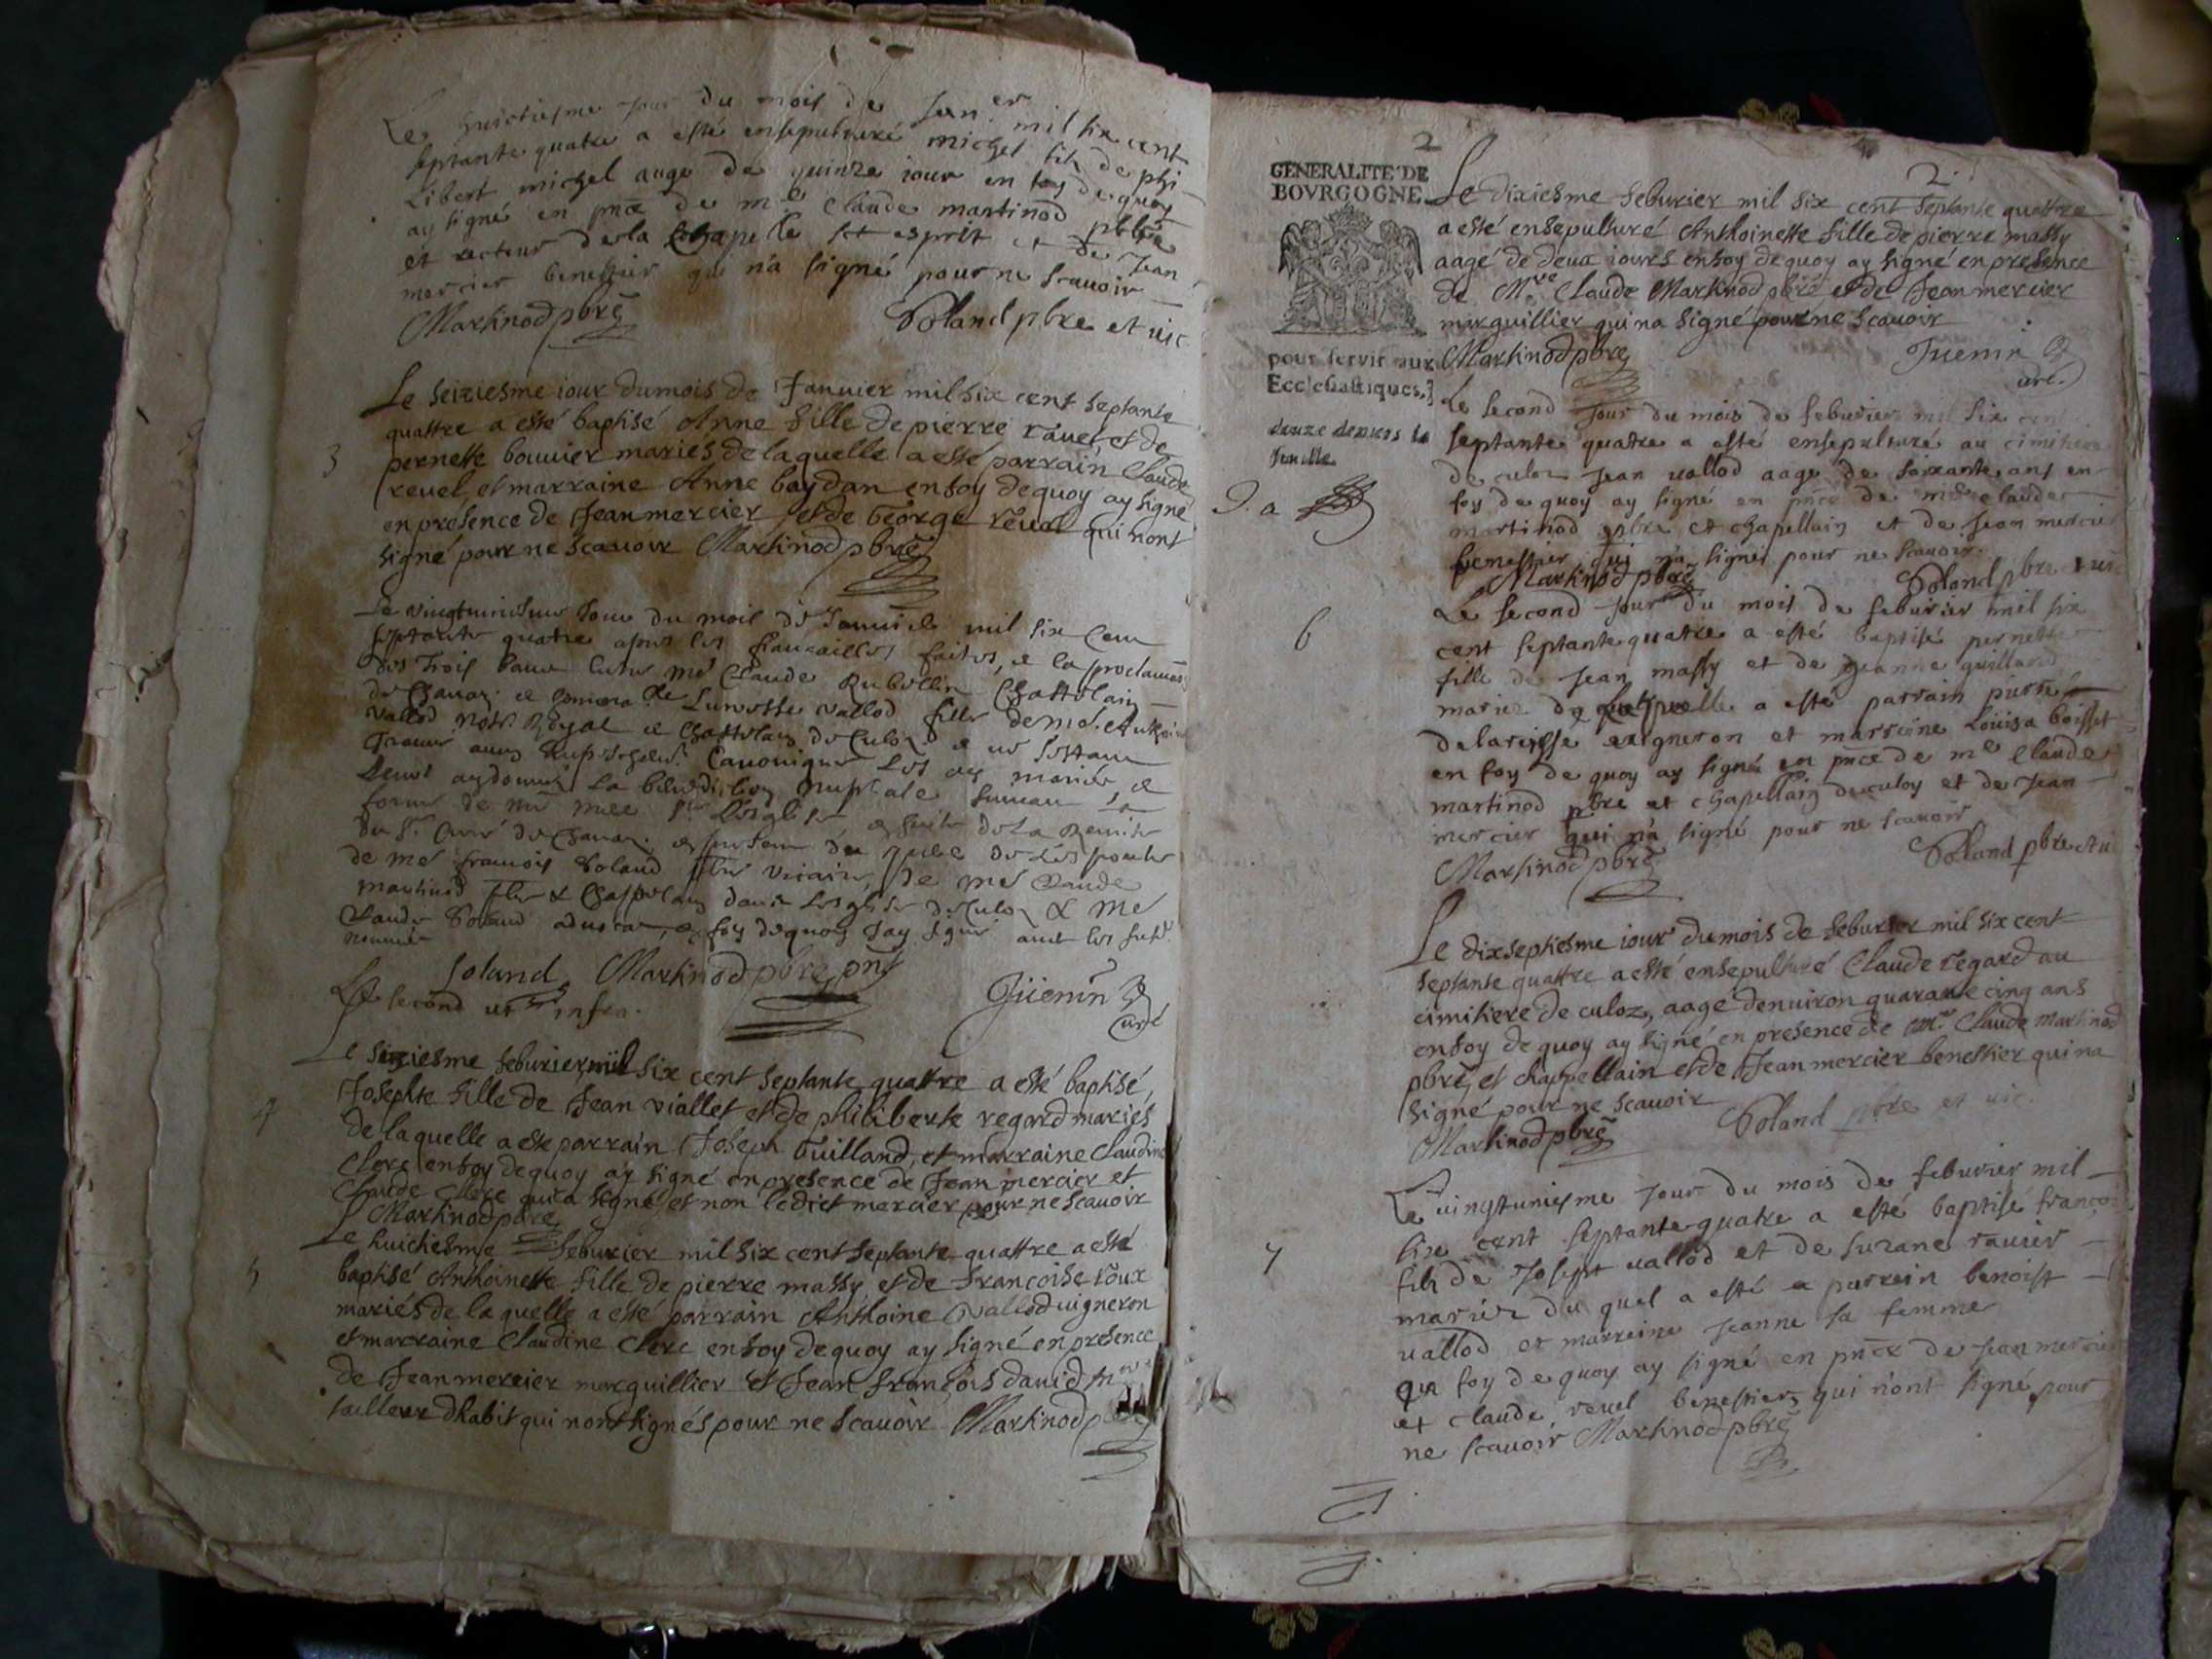 Le huictiesme jour du mois de Janer mil six cent
septante quatre a esté ensepulturé michel fils de phi
libert michel aage de quinze jour en foy de quoy
ay signé en pnce de me claude martinod pbre
et recteur de la chapelle st esprit et de Jean
mercier benestier qui n'a signé pour ne scauoir
Martinod pbre Poland pbre et vic
Le seiziesme iour du mois de Januier mil six cent septante
quattre a esté baptisé Anne fille de pierre rauet et de
3 pernette bouuier mariés de laquelle a esté parrain Claude
reuel, et marraine Anne baydan en foy de quoy ay signé
en presence de Jean mercier et de George reuel qui n'ont
signé pour ne scauoir Martinod pbre
Le jour du mois de Januier mil six cent
septante quatre apres les fiancailles faites, et la proclamaon
des trois bans entre me Claude Rubellin Chattelain
de Chanaz et vallod fille de me Anthoine
vallod nore Royal et Chattelain de Culoz et ne
aucun Canonique les ay mariés, et
leur ay donné la benediction nuptiale suiuant la
forme de nre mere ste esglise de la Remise
du sr Curé de Chanaz en presence du
de me francois Poland pbre vicaire, de me Claude
martinod pbre & Chappelain dans lesglise de Culoz & me
Claude Poland aduocat, en foy de quoy Jay signé auec les sus
nommés
Poland Martinod pbre pnt
Le second ut infra. Juenin
Curé
Le siziesme feburier mil six cent septante quattre a esté baptisé,
Josephte fille de Jean viallet et de philiberte regard mariés
4 de laquelle a esté parrain Joseph Guilland, et marraine Claudine
Clerc en foy de quoy ay signé en presence de Jean mercier et
Claude Clerc qui a signé et non ledict mercier pour ne scauoir
Martinod pbre
Le huictiesme feburier mil six cent septante quattre a esté
5 baptisé Anthoinette fille de pierre massy et de francoise roux
mariés de laquelle a esté parrain Anthoine vallod uigneron
et marraine Claudine Clerc en foy de quoy ay signé en presence
de Jean mercier marguillier et Jean francois dauid
tailleur dhabit qui n'ont signés pour ne scauoir Martinod pbre
2
2.
GENERALITE' DE
BOVRGOGNE.
pour servir aux
Ecclesiastiques.
douze deniers la
feuille
Le dixiesme feburier mil six cent septante quattre
a esté ensepulturé Anthoinette fille de pierre massy
aagé de deux iours en foy de quoy ay signé en presence
de Mre Claude Martinod pbre et de Jean mercier
marguillier qui na signé pour ne scauoir
Martinod pbre Juenin
curé.
Le second Jour du mois de feburier mil six cent
septante quatre a esté ensepulturé au cimitiere
de culoz Jean vallod aage de soixante ans en
foy de quoy ay signé en pnce de mre claude
martinod pbre et chapellain et de Jean mercier
benestier qui n'a signé pour ne scauoir.
Martinod pbre Poland pbre et vic
Le second Jour du mois de feburier mil six
6 cent septante quatre a esté baptisé pernette
fille de Jean massy et de Jeanne guilland
mariez de laquelle a esté parrain pierre
delarisse uigneron et marraine Louisa boisset
en foy de quoy ay signé en pnce de me claude
martinod pbre et chapellain de culoz et de Jean
mercier qui n'a signé pour ne scauoir
Martinod pbre Poland pbre et vi
Le dixseptiesme iour du mois de feburier mil six cent
septante quattre a esté ensepulturé Claude regard au
cimitiere de culoz, aage denuiron quarante cinq ans
en foy de quoy ay signé en presence de mre Claude Martinod
pbre, et chappellain et de Jean mercier benestier qui na
signé pour ne scauoir Poland pbre et vic.
Martinod pbre
Le vingtuniesme Jour du mois de feburier mil
six cent septante quatre a esté baptisé françois
7 fils de Joseph vallod et de suzane rauier
mariez du quel a esté parrein benoist
vallod et marreine Jeanne sa femme
en foy de quoy ay signé en pnce de Jean mercier
et claude reuel benestiers qui n'ont signé pour
ne scauoir Martinod pbre